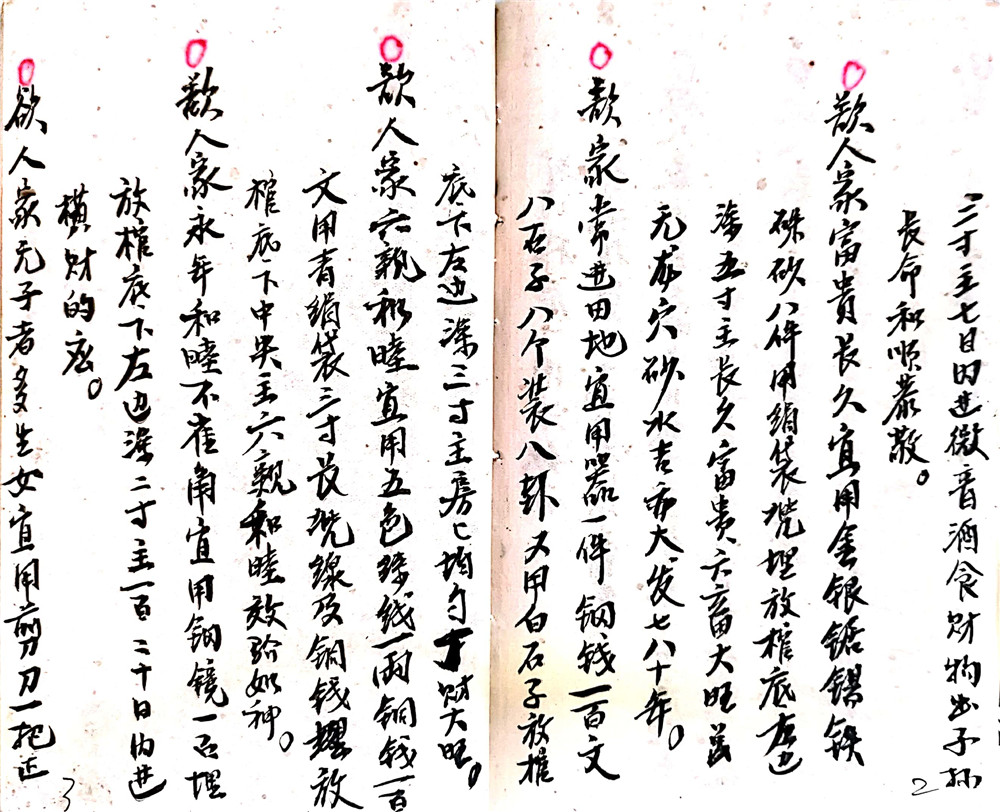 二寸主七日内进微音酒食财物出子孙
长命和顺恭敬。
歆人家富贵长久宜用金银锯锡铁
硃砂八件用绢袋埋放棺底左边
深五寸主长久富贵六畜大旺若
无龙穴砂水吉亦大发七八十年。
歆家常进田地宜用器一件铜钱一百文
八石子八个装八卦又用白石子放棺
2
底下左边深三寸主房匕均匀丁财大旺。
歆人家六親和睦宜用五色线一两铜钱一百
文用青绢袋三寸长线及铜钱放
棺底下中央主六親和睦效验如神。
歆人家永年和睦不雀角宜用铜镜一面埋
放棺底下左边深二寸主一百二十日内进
横财的应。
欲人家无子者多生女宜用剪刀一把
3